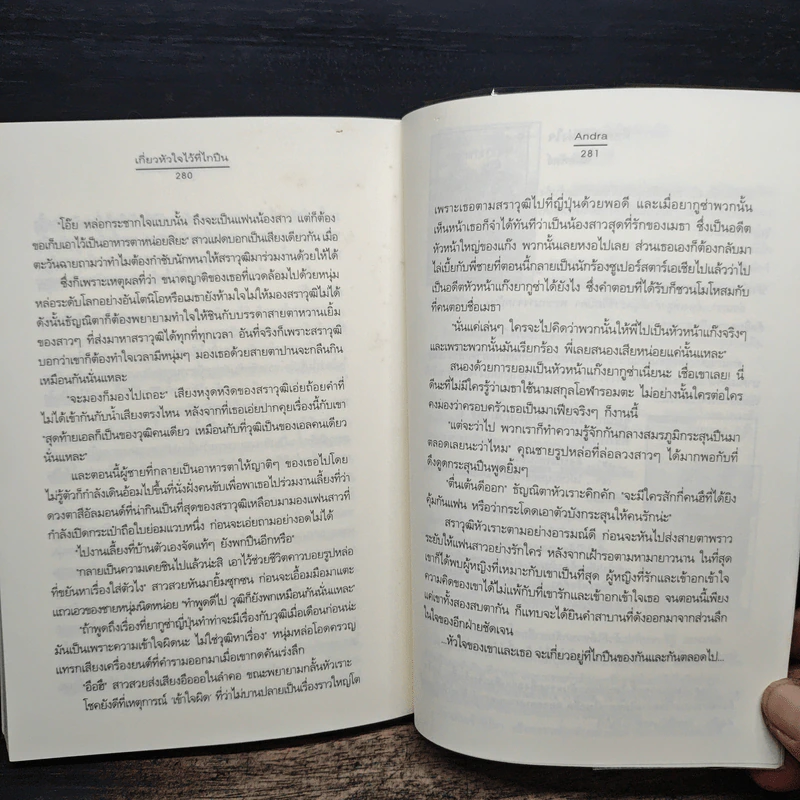 เกี่ยวหัวใจไว้ที่ไกปืน
280
"โอ๊ย หล่อกระชากใจแบบนั้น ถึงจะเป็นแฟนน้องสาว แต่ก็ต้อง
ขอเก็บเอาไว้เป็นอาหารตาหน่อยสิยะ" สาวแฝดบอกเป็นเสียงเดียวกัน เมื่อ
ตะวันฉายถามว่าทำไมต้องกำชับนักหนาให้สราวุฒิมาร่วมงานด้วยให้ได้
ซึ่งก็เพราะเหตุผลที่ว่า ขนาดญาติของเธอที่แวดล้อมไปด้วยหนุ่ม
หล่อระดับโลกอย่างอันโตนิโอหรือเมธายังห้ามใจไม่ให้มองสราวุฒิไม่ได้
ดังนั้นธัญณิตาก็ต้องพยายามทำใจให้ชินกับบรรดาสายตาหวานเยิ้ม
ของสาวๆ ที่ส่งมาหาสราวุฒิได้ทุกที่ทุกเวลา อันที่จริงก็เพราะสราวุฒิ
บอกว่าเขาก็ต้องทำใจเวลามีหนุ่มๆ มองเธอด้วยสายตาปานจะกลืนกิน
เหมือนกันนั่นแหละ
"จะมองก็มองไปเถอะ" เสียงหงุดหงิดของสราวุฒิเอ่ยถ้อยคำที่
ไม่ได้เข้ากันกับน้ำเสียงตรงไหน หลังจากที่เธอเอ่ยปากคุยเรื่องนี้กับเขา
"สุดท้ายเอลก็เป็นของวุฒิคนเดียว เหมือนกับที่วุฒิเป็นของเอลคนเดียว
นั่นแหละ"
และตอนนี้ผู้ชายที่กลายเป็นอาหารตาให้ญาติๆ ของเธอไปโดย
ไม่รู้ตัวก็กำลังเดินอ้อมไปขึ้นที่นั่งฝั่งคนขับเพื่อพาเธอไปร่วมงานเลี้ยงที่ว่า
ดวงตาสีอัลมอนด์ที่น่ากินเป็นที่สุดของสราวุฒิเหลือบมามองแฟนสาวที่
กำลังเปิดกระเป๋าถือใบย่อมแวบหนึ่ง ก่อนจะเอ่ยถามอย่างอดไม่ได้
"ไปงานเลี้ยงที่บ้านตัวเองจัดแท้ๆ ยังพกปืนอีกหรือ"
"กลายเป็นความเคยชินไปแล้วน่ะสิ เอาไว้ช่วยชีวิตคาวบอยรูปหล่อ
ที่ขยันหาเรื่องใส่ตัวไง" สาวสวยหันมายิ้มซุกซน ก่อนจะเอื้อมมือมาแตะ
แถวเอวของชายหนุ่มนิดหน่อย "ทำพูดดีไป วุฒิก็ยังพกเหมือนกันนั่นแหละ"
"ถ้าพูดถึงเรื่องที่ยากูซ่าญี่ปุ่นทำท่าจะมีเรื่องกับวุฒิเมื่อเดือนก่อนน่ะ
มันเป็นเพราะความเข้าใจผิดนะ ไม่ใช่วุฒิหาเรื่อง" หนุ่มหล่อโอดครวญ
แทรกเสียงเครื่องยนต์ที่คำรามออกมาเมื่อเขากดคันเร่งลึก
"อือฮึ" สาวสวยส่งเสียงอืออออในลำคอ ขณะพยายามกลั้นหัวเราะ
โชคยังดีที่เหตุการณ์ 'เข้าใจผิด' ที่ว่าไม่บานปลายเป็นเรื่องราวใหญ่โต
Andra
281
เพราะเธอตามสราวุฒิไปที่ญี่ปุ่นด้วยพอดี และเมื่อยากูซ่าพวกนั้น
เห็นหน้าเธอก็จำได้ทันทีว่าเป็นน้องสาวสุดที่รักของเมธา ซึ่งเป็นอดีต
หัวหน้าใหญ่ของแก๊ง พวกนั้นเลยหงอไปเลย ส่วนเธอเองก็ต้องกลับมา
ไล่เบี้ยกับพี่ชายที่ตอนนี้กลายเป็นนักร้องซูเปอร์สตาร์เอเชียไปแล้วว่าไป
เป็นอดีตหัวหน้าแก๊งยากูซ่าได้ยังไง ซึ่งคำตอบที่ได้รับก็ชวนโมโหสมกับ
ที่คนตอบชื่อเมธา
"นั่นแค่เล่นๆ ใครจะไปคิดว่าพวกนั้นให้พี่ไปเป็นหัวหน้าแก๊งจริงๆ
และเพราะพวกนั้นมันเรียกร้อง พี่เลยสนองเสียหน่อยแค่นั้นแหละ"
สนองด้วยการยอมเป็นหัวหน้าแก๊งยากูซ่าเนี่ยนะ เชื่อเขาเลย! นี่
ดีนะที่ไม่มีใครรู้ว่าเมธาใช้นามสกุลโอฬารอมตะ ไม่อย่างนั้นใครต่อใคร
คงมองว่าครอบครัวเธอเป็นมาเฟียจริงๆ ก็งานนี้
"แต่จะว่าไป พวกเราก็ทำความรู้จักกันกลางสมรภูมิกระสุนปืนมา
ตลอดเลยนะว่าไหม" คุณชายรูปหล่อที่ล่อลวงสาวๆ ได้มากพอกับที่
ดึงดูดกระสุนปืนพูดยิ้มๆ
"ตื่นเต้นดีออก" ธัญณิตาหัวเราะคิกคัก "จะมีใครสักกี่คนฮึที่ได้ยิง
คุ้มกันแฟน หรือว่ากระโดดเอาตัวบังกระสุนให้คนรักน่ะ"
สราวุฒิหัวเราะตามอย่างอารมณ์ดี ก่อนจะหันไปส่งสายตาพราว
ระยับให้แฟนสาวอย่างรักใคร่ หลังจากเฝ้ารอตามหามายาวนาน ในที่สุด
เขาก็ได้พบผู้หญิงที่เหมาะกับเขาเป็นที่สุด ผู้หญิงที่รักและเข้าอกเข้าใจ
ความคิดของเขาได้ไม่แพ้กับที่เขารักและเข้าอกเข้าใจเธอ จนตอนนี้เพียง
แค่เขาทั้งสองสบตากัน ก็แทบจะได้ยินคำสาบานที่ดังออกมาจากส่วนลึก
ในใจของอีกฝ่ายชัดเจน
...หัวใจของเขาและเธอ จะเกี่ยวอยู่ที่ไกปืนของกันและกันตลอดไป...